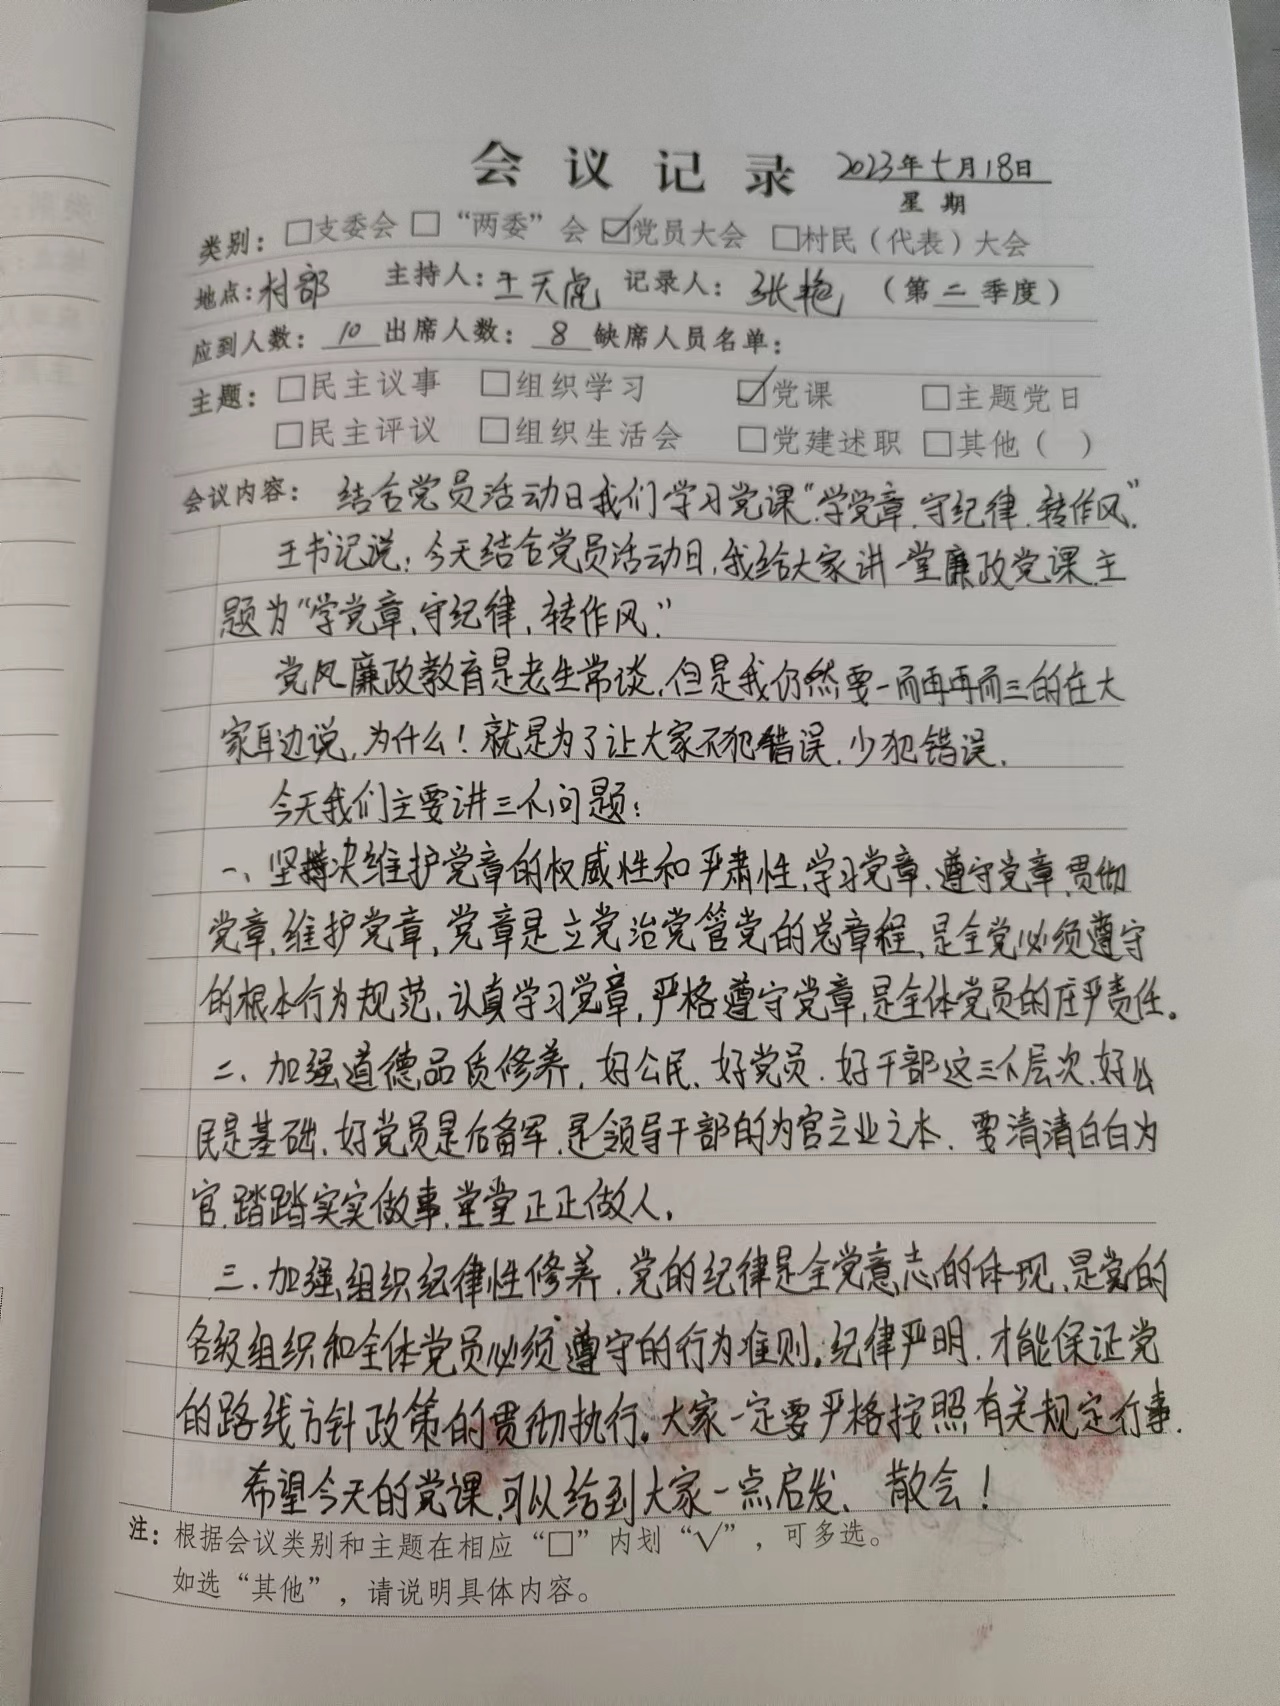 会议记录 2023年七月18日
星期
类别：□支委会 □“两委”会 ☑党员大会 □村民（代表）大会
地点：村部 主持人：王天虎 记录人：张艳 （第二季度）
应到人数：10 出席人数：8 缺席人员名单：
主题：□民主议事 □组织学习 ☑党课 □主题党日
□民主评议 □组织生活会 □党建述职 □其他（ ）
会议内容：结合党员活动日我们学习党课“学党章、守纪律、转作风”
王书记说：今天结合党员活动日，我给大家讲一堂廉政党课，主
题为“学党章、守纪律，转作风。”
党风廉政教育是老生常谈，但是我仍然要一而再再而三的在大
家耳边说，为什么！就是为了让大家不犯错误，少犯错误，
今天我们主要讲三个问题：
一、坚持决维护党章的权威性和严肃性，学习党章、遵守党章，贯彻
党章，维护党章，党章是立党治党管党的总章程，是全党必须遵守
的根本行为规范，认真学习党章，严格遵守党章，是全体党员的庄严责任。
二、加强道德品质修养，好公民、好党员、好干部这三个层次，好公
民是基础，好党员是后备军，是领导干部的为官立业之本，要清清白白为
官，踏踏实实做事，堂堂正正做人。
三、加强组织纪律性修养，党的纪律是全党意志的体现，是党的
各级组织和全体党员必须遵守的行为准则。纪律严明，才能保证党
的路线方针政策的贯彻执行。大家一定要严格按照有关规定行事。
希望今天的党课，可以给到大家一点启发、散会！
注：根据会议类别和主题在相应“□”内划“√”，可多选。
如选“其他”，请说明具体内容。